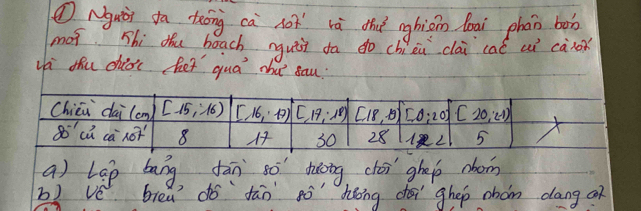 ① Người ta trồng cà rốt và thử nghiệm loại phân bón
mới. Khi thu hoạch người ta đo chiều dài các củ cà rốt
và thu được kết quả như sau:
Chiều dài (cm) [15;16) [16;17) [17;18) [18,19) [0;20) [20;21)
Số củ cà rốt 8 17 30 28 12 5
a) Lập bảng tần số tương đối ghép nhóm
b) Vẽ biểu đồ tần số tương đối ghép nhóm dạng cột